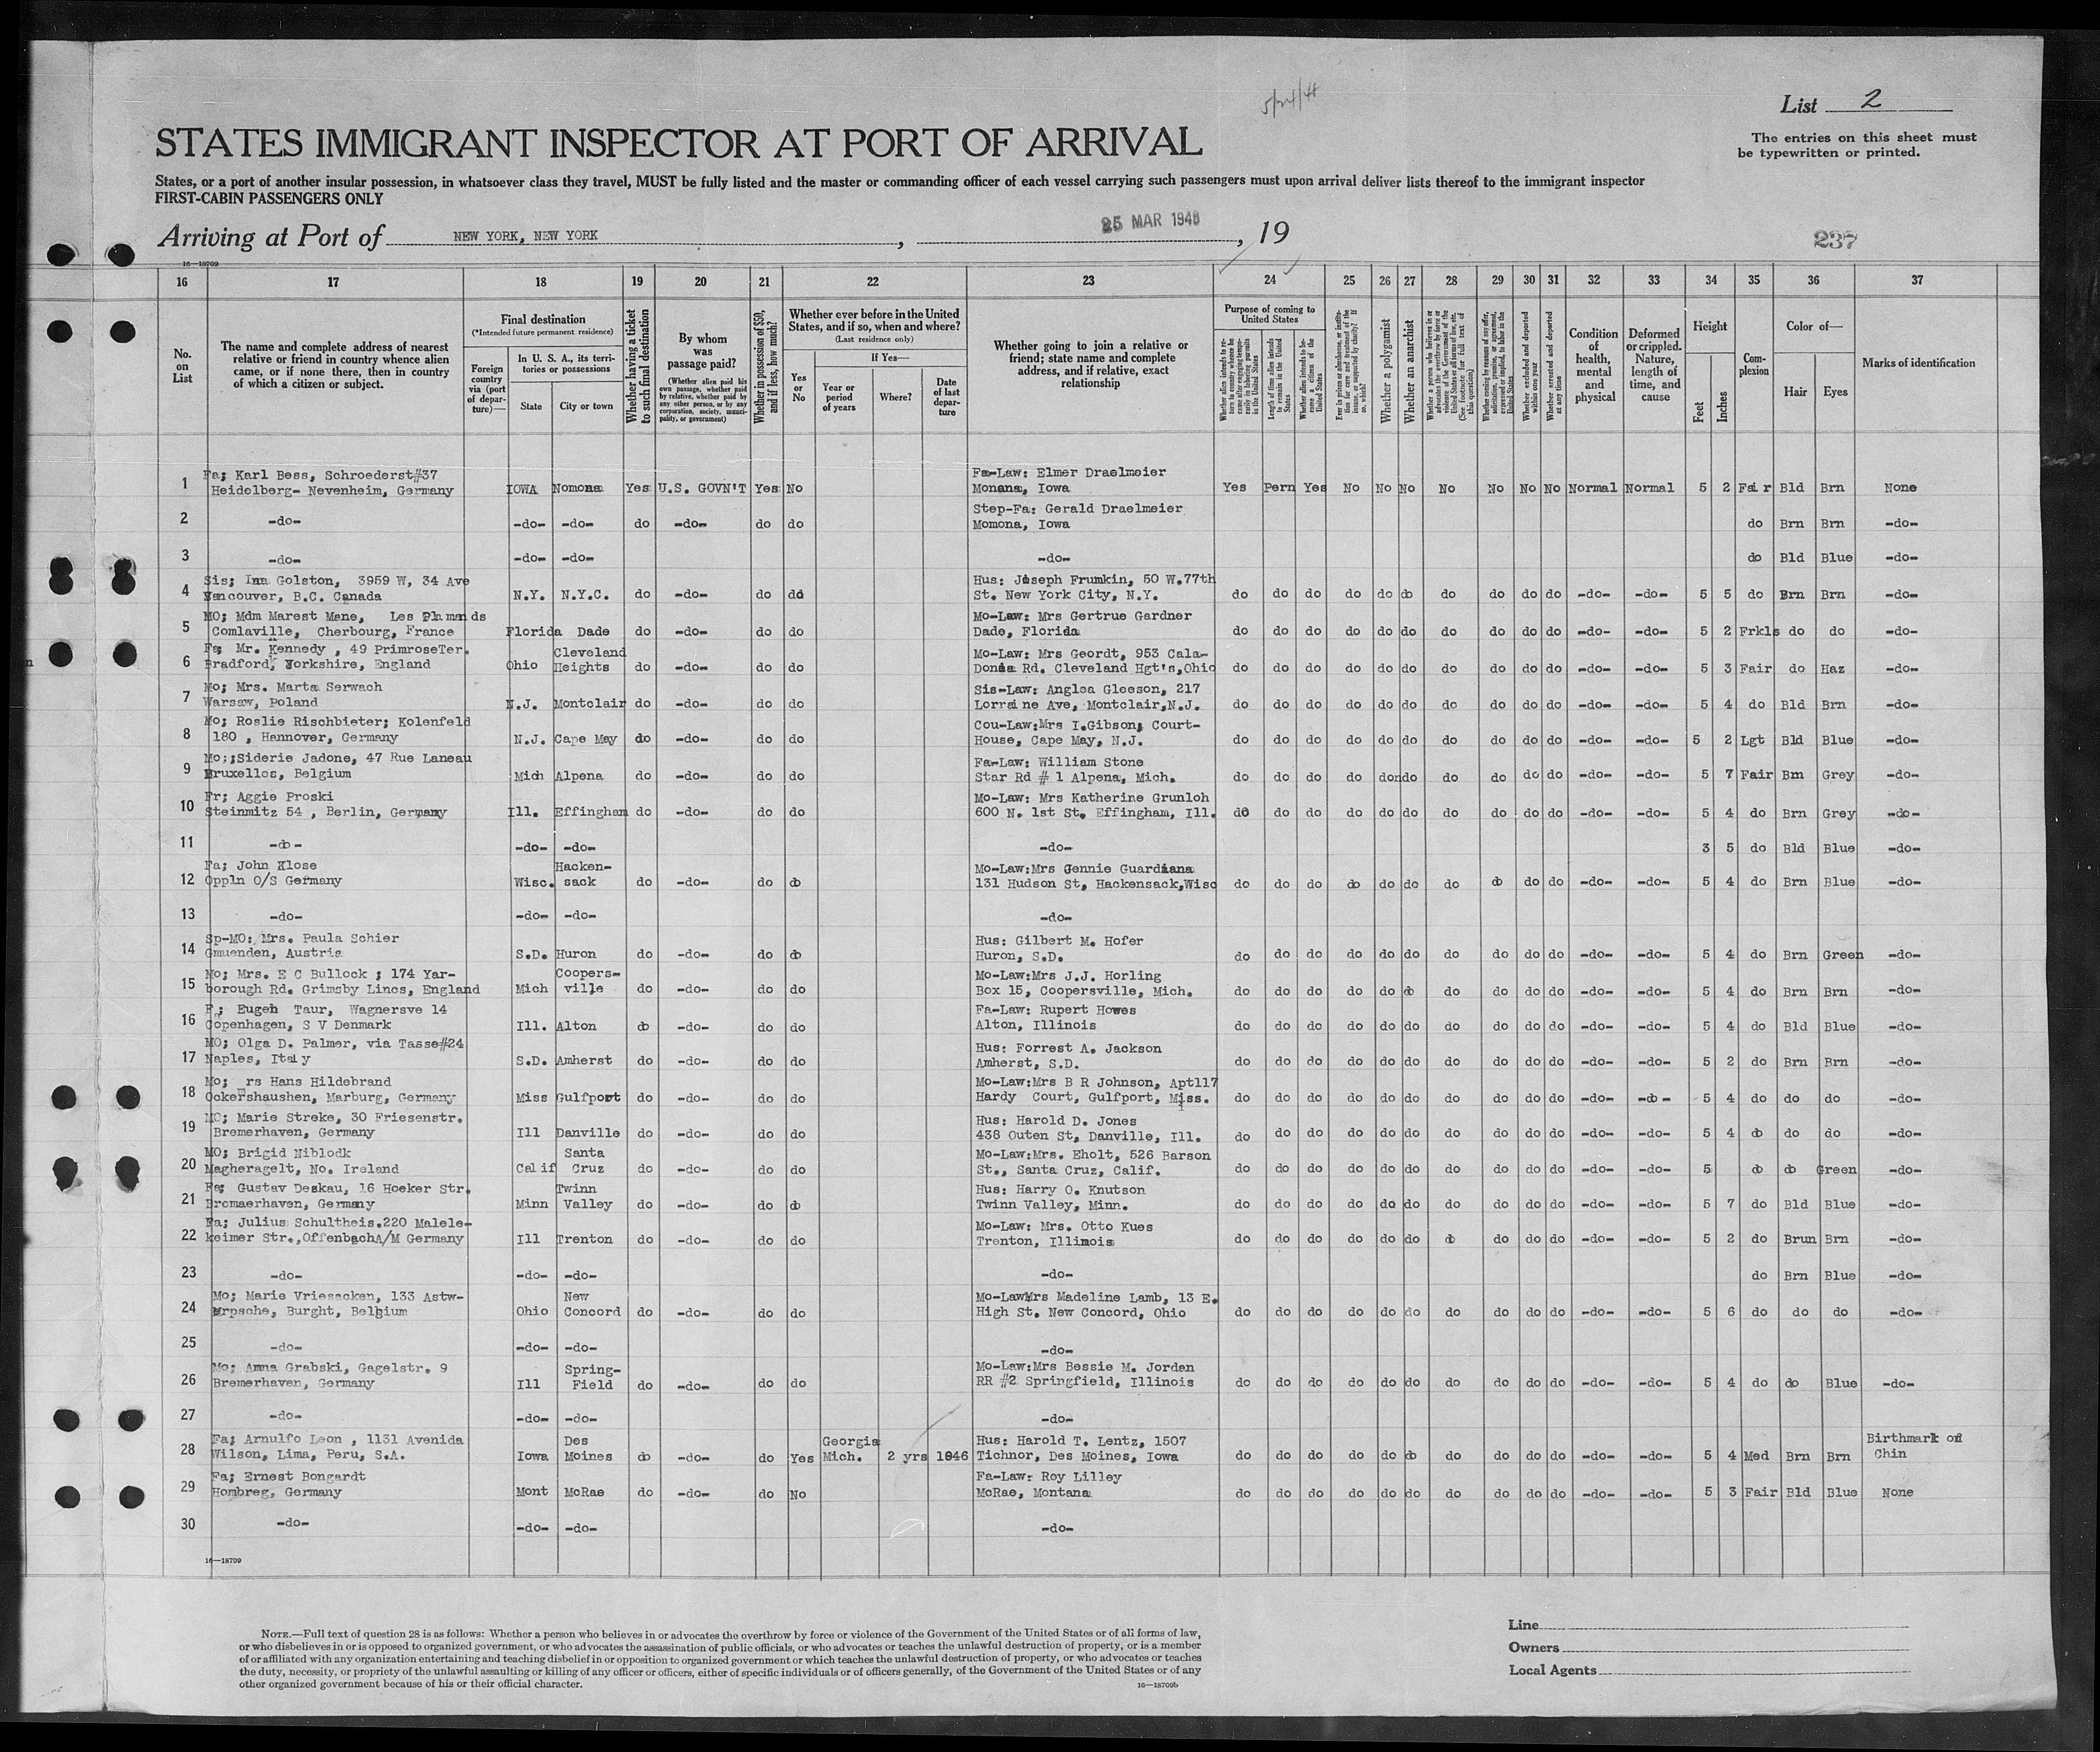 List 2
The entries on this sheet must
be typewritten or printed.
STATES IMMIGRANT INSPECTOR AT PORT OF ARRIVAL
States, or a port of another insular possession, in whatsoever class they travel, MUST be fully listed and the master or commanding officer of each vessel carrying such passengers must upon arrival deliver lists thereof to the immigrant inspector
FIRST-CABIN PASSENGERS ONLY
Arriving at Port of NEW YORK, NEW YORK , 25 MAR 1948 , 19
237
16—18709
16 17 18 19 20 21 22 23 24 25 26 27 28 29 30 31 32 33 34 35 36 37
No. on List
The name and complete address of nearest relative or friend in country whence alien came, or if none there, then in country of which a citizen or subject.
Final destination
(*Intended future permanent residence)
Foreign country via (port of departure)—
In U. S. A., its territories or possessions
State City or town
Whether having a ticket to such final destination
By whom was passage paid?
(Whether alien paid his own passage, whether paid by relative, whether paid by any other person, or by any corporation, society, municipality, or government)
Whether in possession of $50, and if less, how much?
Whether ever before in the United States, and if so, when and where?
(Last residence only)
Yes or No
If Yes—
Year or period of years
Where?
Date of last departure
Whether going to join a relative or friend; state name and complete address, and if relative, exact relationship
Purpose of coming to United States
Length of time alien intends to remain in the United States
Whether alien intends to become a citizen of the United States
Whether a polygamist
Whether an anarchist
Whether excluded and deported within one year
Whether arrested and deported at any time
Condition of health, mental and physical
Deformed or crippled. Nature, length of time, and cause
Height
Feet Inches
Complexion
Color of—
Hair Eyes
Marks of identification
1 Fa; Karl Bess, Schroederst#37
Heidelberg- Nevenheim, Germany IOWA Nomona Yes U.S. GOVN'T Yes No Fa-Law: Elmer Draelmeier
Monana, Iowa Yes Perm Yes No No No No No No No Normal Normal 5 2 Fair Bld Brn None
2 -do- -do- -do- do -do- do do Step-Fa: Gerald Draelmeier
Momona, Iowa do Brn Brn -do-
3 -do- -do- -do- -do- do Bld Blue -do-
4 Sis; Ina Golston, 3959 W, 34 Ave
Vancouver, B.C. Canada N.Y. N.Y.C. do -do- do do Hus: Joseph Frumkin, 50 W.77th
St. New York City, N.Y. do do do do do do do do do do -do- -do- 5 5 do Brn Brn -do-
5 MO; Mdm Marest Mene, Les Flamands
Comlaville, Cherbourg, France Florida Dade do -do- do do Mo-Law: Mrs Gertrue Gardner
Dade, Florida do do do do do do do do do do -do- -do- 5 2 Frkls do do -do-
6 Fa; Mr. Kennedy , 49 PrimroseTer.
Bradford, Yorkshire, England Ohio Cleveland Heights do -do- do do Mo-Law: Mrs Geordt, 953 Cala-
Donia Rd. Cleveland Hgt's,Ohio do do do do do do do do do do -do- -do- 5 3 Fair do Haz -do-
7 Mo; Mrs. Marta Serwach
Warsaw, Poland N.J. Montclair do -do- do do Sis-Law: Anglea Gleeson, 217
Lorraine Ave, Montclair,N.J. do do do do do do do do do do -do- -do- 5 4 do Bld Brn -do-
8 Mo; Roslie Rischbieter; Kolenfeld
180 , Hannover, Germany N.J. Cape May do -do- do do Cou-Law:Mrs I.Gibson, Court-
House, Cape May, N.J. do do do do do do do do do do -do- -do- 5 2 Lgt Bld Blue -do-
9 Mo;;Siderie Jadone, 47 Rue Laneau
Bruxelles, Belgium Mich Alpena do -do- do do Fa-Law: William Stone
Star Rd # 1 Alpena, Mich. do do do do do do do do do do -do- -do- 5 7 Fair Brn Grey -do-
10 Fr; Aggie Proski
Steinmitz 54 , Berlin, Germany Ill. Effingham do -do- do do Mo-Law: Mrs Katherine Grunloh
600 N. 1st St. Effingham, Ill. do do do do do do do do do do -do- -do- 5 4 do Brn Grey -do-
11 -do- -do- -do- -do- 3 5 do Bld Blue -do-
12 Fa; John Klose
Oppln O/S Germany Wisc. Hacken- sack do -do- do do Mo-Law:Mrs Gennie Guardiana
131 Hudson St, Hackensack,Wisc do do do do do do do do do do -do- -do- 5 4 do Brn Blue -do-
13 -do- -do- -do- -do-
14 Sp-MO: Mrs. Paula Schier
Gmuenden, Austria S.D. Huron do -do- do do Hus: Gilbert M. Hofer
Huron, S.D. do do do do do do do do do do -do- -do- 5 4 do Brn Green -do-
15 Mo; Mrs. E C Bullock ; 174 Yar-
borough Rd. Grimsby Lincs, England Mich Coopers- ville do -do- do do Mo-Law:Mrs J.J. Horling
Box 15, Coopersville, Mich. do do do do do do do do do do -do- -do- 5 4 do Brn Brn -do-
16 F; Eugen Taur, Wagnersve 14
Copenhagen, S V Denmark Ill. Alton do -do- do do Fa-Law: Rupert Howes
Alton, Illinois do do do do do do do do do do -do- -do- 5 4 do Bld Blue -do-
17 MO; Olga D. Palmer, via Tasse#24
Naples, Italy S.D. Amherst do -do- do do Hus: Forrest A. Jackson
Amherst, S.D. do do do do do do do do do do -do- -do- 5 2 do Brn Brn -do-
18 Mo; Mrs Hans Hildebrand
Ockershaushen, Marburg, Germany Miss Gulfport do -do- do do Mo-Law:Mrs B R Johnson, Apt117
Hardy Court, Gulfport, Miss. do do do do do do do do do do -do- -do- 5 4 do do do -do-
19 MO; Marie Streke, 30 Friesenstr.
Bremerhaven, Germany Ill Danville do -do- do do Hus: Harold D. Jones
438 Outen St, Danville, Ill. do do do do do do do do do do -do- -do- 5 4 do do do -do-
20 MO; Brigid Niblodk
Magheragelt, No. Ireland Calif Santa Cruz do -do- do do Mo-Law:Mrs. Eholt, 526 Barson
St., Santa Cruz, Calif. do do do do do do do do do do -do- -do- 5 do do Green -do-
21 Fa; Gustav Deskau, 16 Hoeker Str.
Bremaerhaven, Germany Minn Twinn Valley do -do- do do Hus: Harry O. Knutson
Twinn Valley, Minn. do do do do do do do do do do -do- -do- 5 7 do Bld Blue -do-
22 Fa; Julius Schultheis.220 Malele-
keimer Str.,OffenbachA/M Germany Ill Trenton do -do- do do Mo-Law: Mrs. Otto Kues
Trenton, Illinois do do do do do do do do do do -do- -do- 5 2 do Brun Brn -do-
23 -do- -do- -do- -do- do Brn Blue -do-
24 Mo; Marie Vriesacken, 133 Astw-
erpsche, Burght, Belgium Ohio New Concord do -do- do do Mo-LawMrs Madeline Lamb, 13 E.
High St. New Concord, Ohio do do do do do do do do do do -do- -do- 5 6 do do do -do-
25 -do- -do- -do- -do-
26 Mo; Anna Grabski, Gagelstr. 9
Bremerhaven, Germany Ill Spring- Field do -do- do do Mo-Law:Mrs Bessie M. Jordan
RR #2 Springfield, Illinois do do do do do do do do do do -do- -do- 5 4 do do Blue -do-
27 -do- -do- -do- -do-
28 Fa; Arnulfo Leon , 1131 Avenida
Wilson, Lima, Peru, S.A. Iowa Des Moines do -do- do Yes Georgia Mich. 2 yrs 1946 Hus: Harold T. Lentz, 1507
Tichnor, Des Moines, Iowa do do do do do do do do do do -do- -do- 5 4 Med Brn Brn Birthmark on Chin
29 Fa; Ernest Bongardt
Hombreg, Germany Mont McRae do -do- do No Fa-Law: Roy Lilley
McRae, Montana do do do do do do do do do do -do- -do- 5 3 Fair Bld Blue None
30 -do- -do- -do- -do-
16—18709
NOTE.—Full text of question 28 is as follows: Whether a person who believes in or advocates the overthrow by force or violence of the Government of the United States or of all forms of law,
or who disbelieves in or is opposed to organized government, or who advocates the assassination of public officials, or who advocates or teaches the unlawful destruction of property, or is a member
of or affiliated with any organization entertaining and teaching disbelief in or opposition to organized government or which teaches the unlawful destruction of property, or who advocates or teaches
the duty, necessity, or propriety of the unlawful assaulting or killing of any officer or officers, either of specific individuals or of officers generally, of the Government of the United States or of any
other organized government because of his or their official character.
16—18709b
Line
Owners
Local Agents